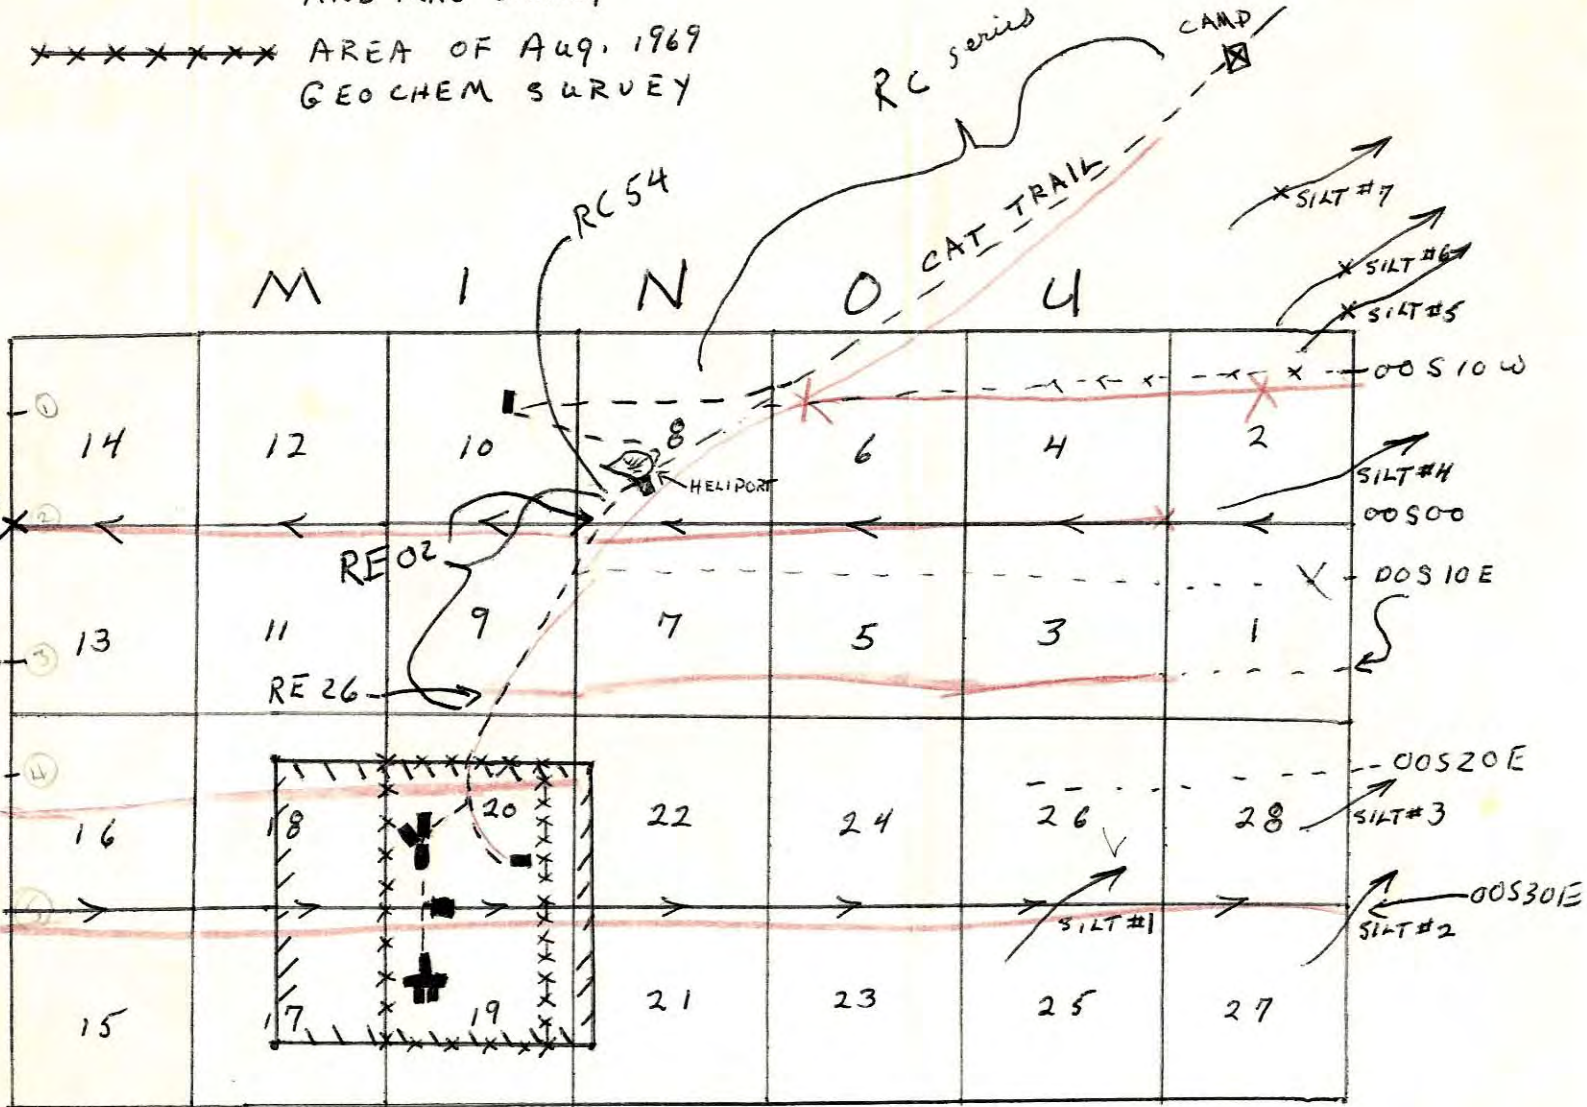 AREA OF Aug. 1969
GEOCHEM SURVEY
RC series
CAMP
CAT TRAIL
RC 54
SILT #7
SILT #6
SILT #5
M I N O U
00S10W
① 14 12 10 8 6 4 2
HELIPORT
SILT #4
② 00S00
RE02
00S10E
③ 13 11 9 7 5 3 1
RE 26
④ 00S20E
16 18 20 22 24 26 28
SILT #3
⑤ 00S30E
SILT #1
SILT #2
15 17 19 21 23 25 27